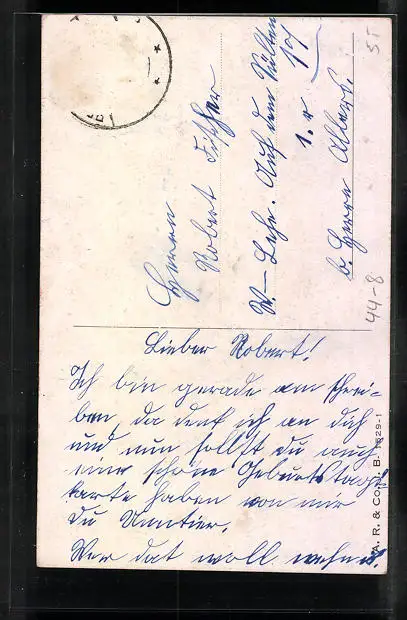 Herrn
Robert Fischer
W-Lehe. Auf dem Sülten
10
1. r
b. Herrn Albers.
Lieber Robert!
Ich bin gerade am schrei-
ben, da denk ich an dich
und nun sollst du auch
eine schöne Geburtstags-
karte haben von mir
du
Wer dat woll
A. R. & Co. B. 1629-1
44-8